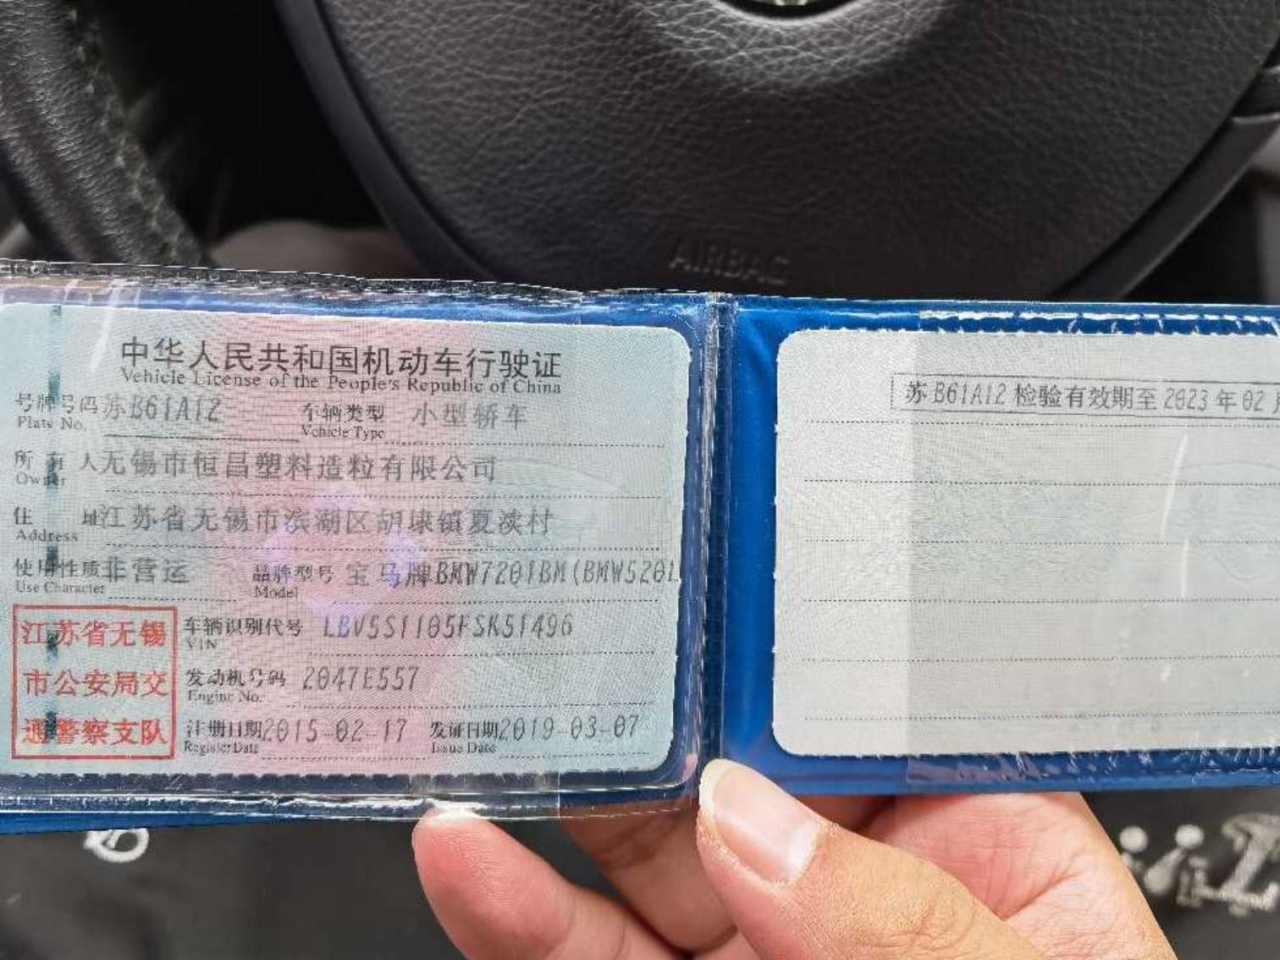 AIRBAG
中华人民共和国机动车行驶证
Vehicle License of the People's Republic of China
号牌号码 苏B61A12 车辆类型 小型轿车
Plate No. Vehicle Type
所有人 无锡市恒昌塑料造粒有限公司
Owner
住址 江苏省无锡市滨湖区胡埭镇夏渎村
Address
使用性质 非营运 品牌型号 宝马牌BMW7201BM(BMW520L
Use Character Model
江苏省无锡
市公安局交
通警察支队
车辆识别代号 LBV5S1105FSK51496
VIN
发动机号码 2047E557
Engine No.
注册日期 2015-02-17 发证日期 2019-03-07
Register Date Issue Date
苏B61A12 检验有效期至 2023年02